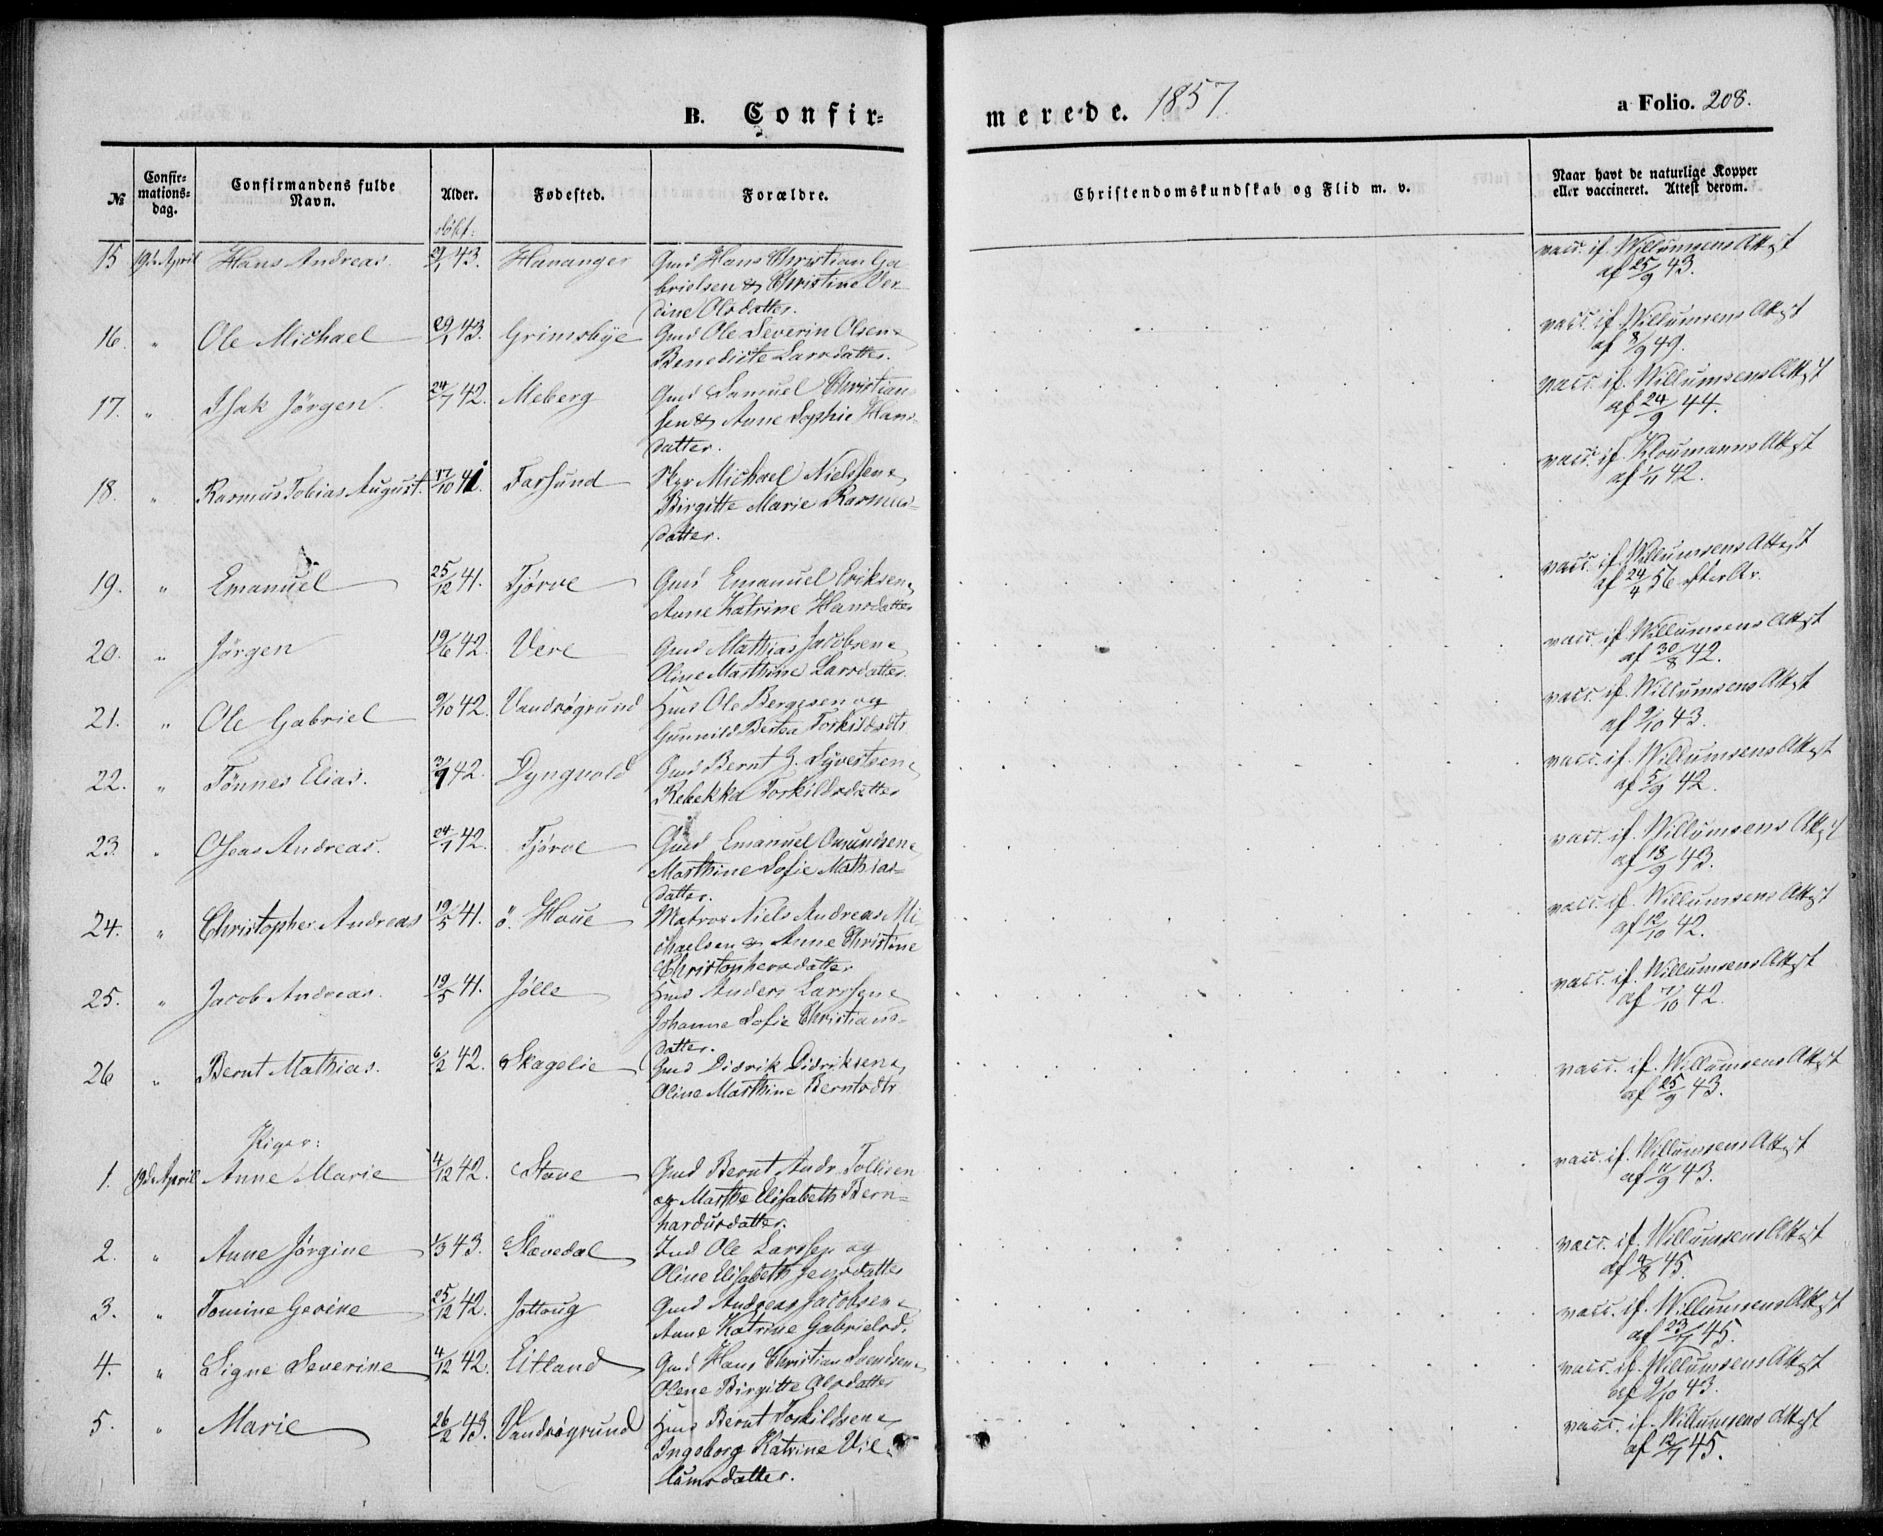 B. Confir=
merede. 1857.
a Folio. 208.
№
Confir=
mations=
dag.
Confirmandens fulde
Navn.
Alder.
Fødested.
Forældre.
Christendomskundskab og Flid m. v.
Naar havt de naturlige Kopper
eller vaccineret. Attest derom.
døbt:
15 19de April Hans Andreas 43. Hananger Gmd Hans Christian Ga
brielsen & Christine
Olsdatter.
vacc. if. Willumsens Attest
af 25/9 43.
16. " Ole Michael 29/1 43. Grimsbye Gmd Ole Severin Olsen &
Benedicte Larsdatter.
vacc. if. Willumsens Attest
af 8/9 49.
17. " Isak Jörgen 24/7 42. Meberg Gmd Samuel Christian
sen & Anne Sophie Hans
datter.
vacc. if. Willumsens Attest
af 24/9 44.
18. " Rasmus Tobias August. 17/10 41. Farsund Michael Nielssen &
Birgitte Marie Rasmus=
datter.
vacc. if. Attest
af 1/11 42.
19. " Emanuel 25/12 41. Tjørve Gmd Emanuel Eriksen &
Anne Katrine Hansdatter
vacc. if. Willumsens Attest
af 24/4 56
20. " Jörgen 19/6 42. Vere Gmd Mathias Jacobsen &
Oline Marthine Larsdatter
vacc. if. Willumsens Attest
af 30/8 42.
21. " Ole Gabriel 9/10 42. Vandrøgrund Hmd Ole Bergesen og
Gunnild Bertea Torkildsdtr
vacc. if. Willumsens Attest
af 9/10 43.
22. " Tönnes Elias. 42. Dyngvold Gmd Bernt G. Syvertsen &
Rebekka Torkildsdatter
vacc. if. Willumsens Attest
af 5/9 42.
23. " Oseas Andreas. 24/7 42. Tjørve Gmd Emanuel Omundsen &
Marthine Sofie Mathias=
datter.
vacc. if. Willumsens Attest
af 18/9 43.
24. " Christopher Andreas 19/5 41. ö. Haue Matros Niels Andreas Mi
chaelsen & Anne Christine
Christophersdatter
vacc. if. Willumsens Attest
af 12/10 42.
25. " Jacob Andreas. 19/5 41. Jølle Hmd Anders Larssen &
Johanne Sofie Christians=
datter.
vacc. if. Willumsens Attest
af 7/10 42.
26 " Bernt Mathias. 6/2 42. Skagelie Gmd Didrik Didriksen &
Oline Marthine Berntsdtr
vacc. if. Willumsens Attest
af 25/9 43.
Piger:
1. 19de April Anne Marie 4/12 42. Stave Gmd Bernt Andr. Tollisen
og Marthe Elisabeth Bern=
hardusdatter.
vacc. if. Willumsens Attest
af 11/9 43.
2. " Anne Jørgine 1/3 43. Slævedal Ind Ole Larssen og
Oline Elisabeth Jensdatter
vacc. if. Willumsens Attest
af 4/8 45.
3. " Tomine Gevine 25/12 42. Jøttoug Gmd Andreas Jacobsen &
Anne Katrine Gabrielsd.
vacc. if. Willumsens Attest
af 23/7 45.
4. " Signe Severine 4/12 42. Eitland Gmd Hans Christian Svendsen &
Olene Birgitte Olsdatter
vacc. if. Willumsens Attest
af 9/10 43.
5. " Marie 26/2 43. Vandrøgrund Hmd Bernt Torkildsen &
Ingeborg Katrine Vil=
lumsdatter.
vacc. if. Willumsens Attest
af 12/7 45.